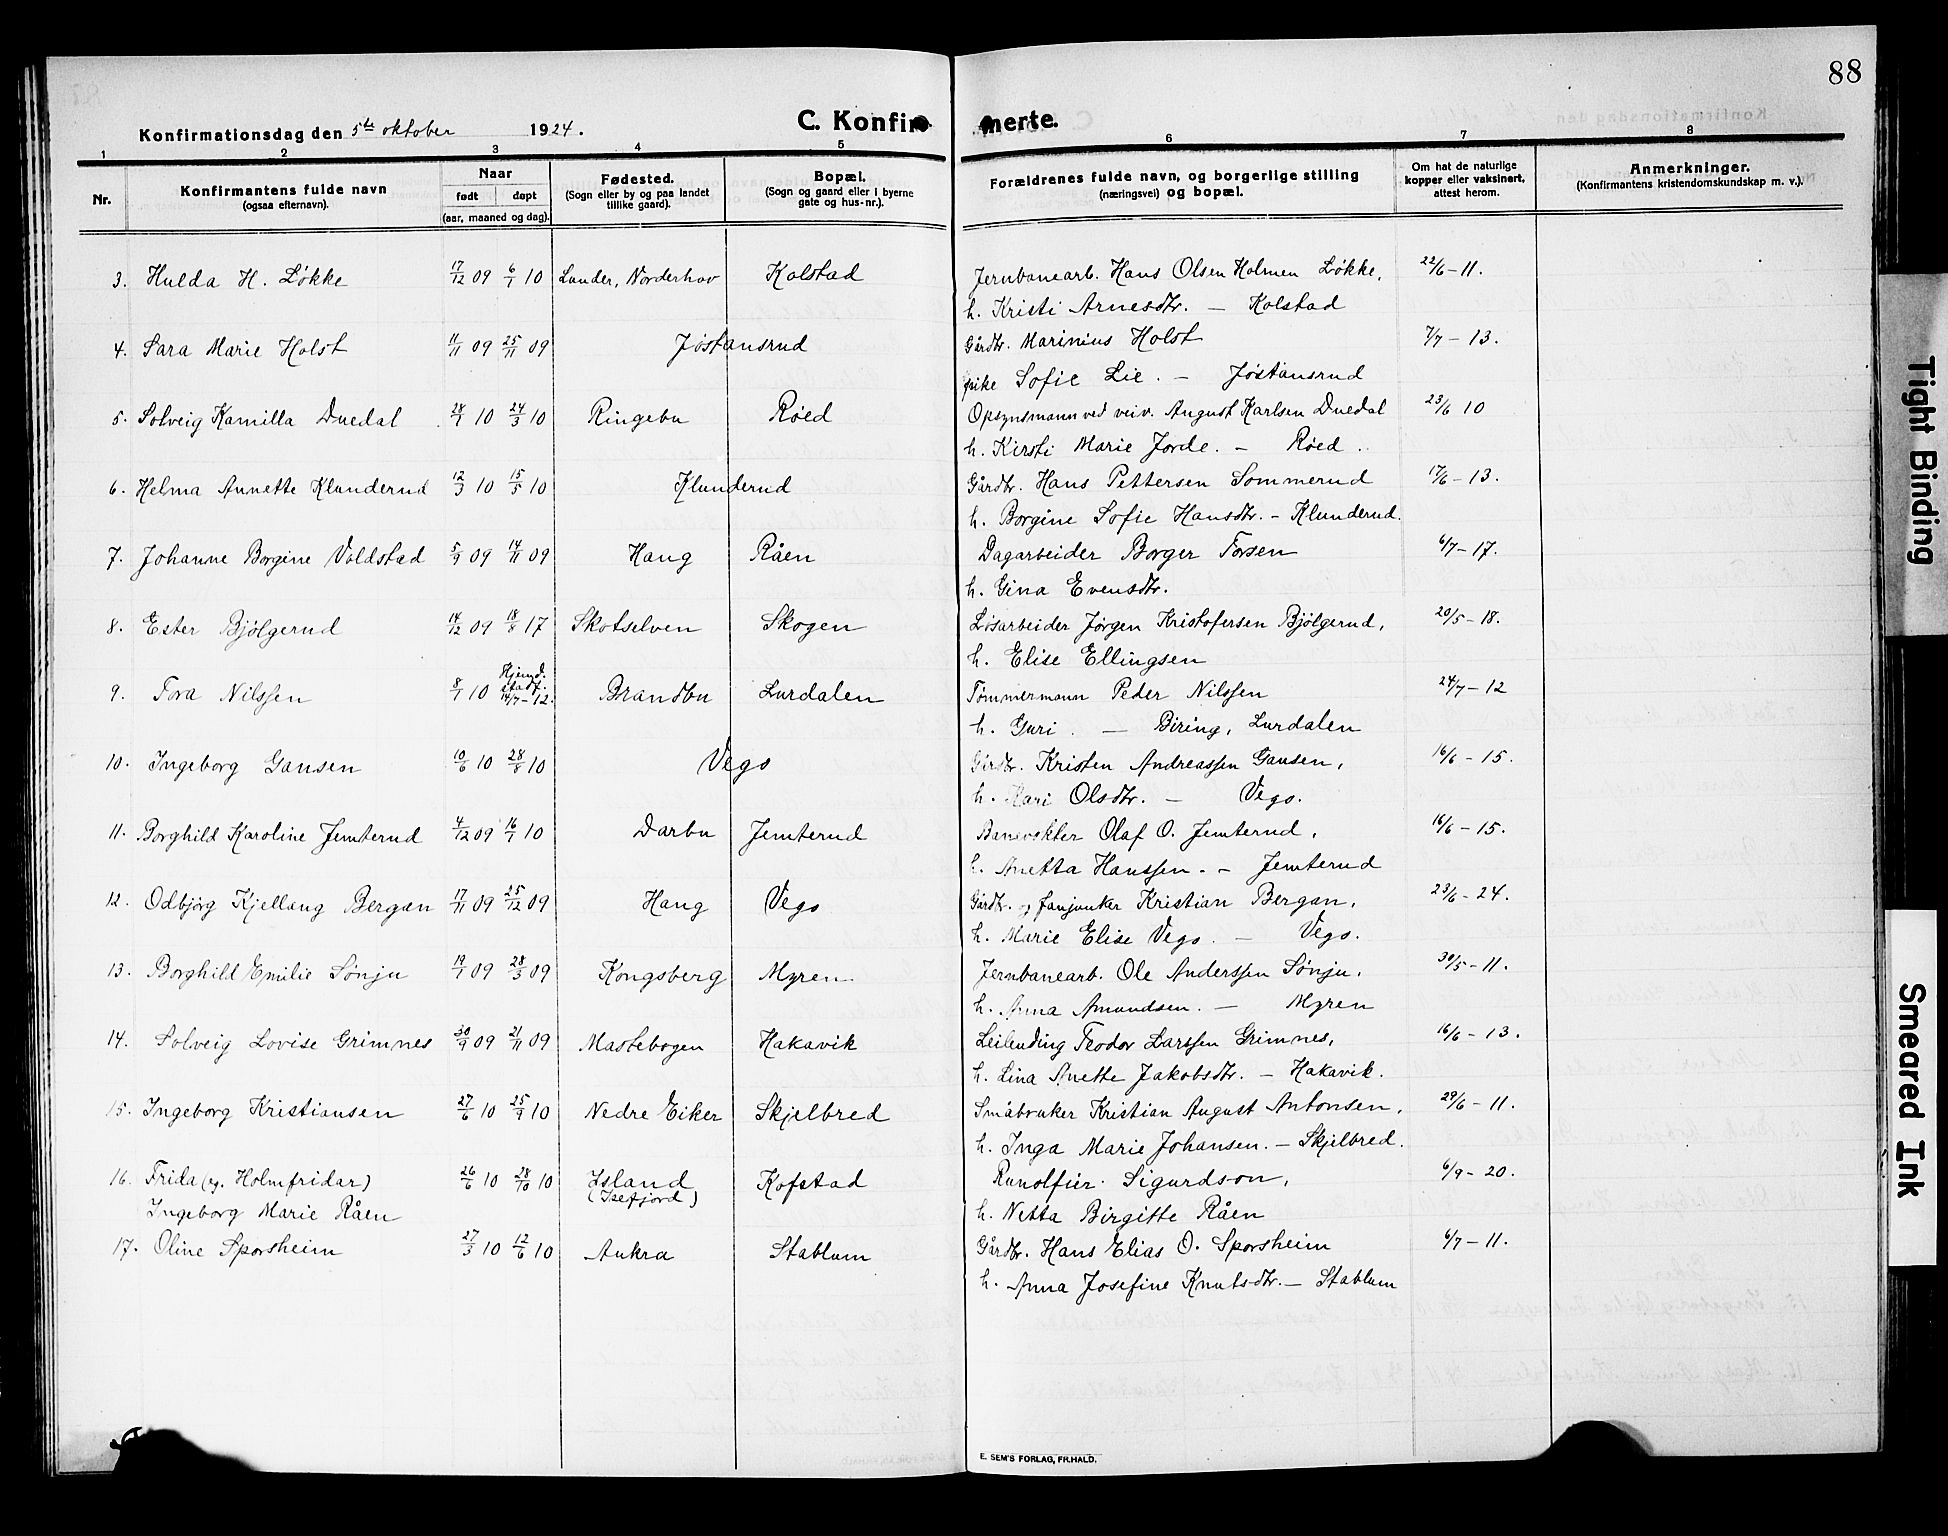 88
Konfirmationsdag den 5te oktober 1924.
C. Konfirmerte.
1 2 3 4 5 6 7 8
Nr.
Konfirmantens fulde navn
(ogsaa efternavn).
Naar
født døpt
(aar, maaned og dag).
Fødested.
(Sogn eller by og paa landet
tillike gaard).
Bopæl.
(Sogn og gaard eller i byerne
gate og hus-nr.).
Forældrenes fulde navn, og borgerlige stilling
(næringsvei) og bopæl.
Om hat de naturlige
kopper eller vaksinert,
attest herom.
Anmerkninger.
(Konfirmantens kristendomskundskap m. v.).
3. Hulda H. Løkke 17/12 09 6/1 10 Lunder, Norderhov Kolstad Jernbanearb. Hans Olsen Holmen Løkke, 22/6-11.
h. Kristi Arnesdtr. - Kolstad
4. Sara Marie Holst 11/11 09 25/11 09 Jøstansrud Gårdbr. Marinius Holst 7/7-13.
pike Sofie Lie. - Jøstansrud
5. Solveig Kamilla Duedal 28/1 10 24/3 10 Ringebu Røed Opsynsmann ved veiv. August Karlsen Duedal 23/6 10
h. Kirsti Marie Jorde. - Røed.
6. Helma Annette Klunderud 12/3 10 15/5 10 Klunderud Gårdbr. Hans Pettersen Sommerud 17/6-13.
h. Borgine Sofie Hansdtr. - Klunderud.
7. Johanne Borgine Voldstad 5/9 09 14/11 09 Haug Råen Dagarbeider Borger Torsen 6/7-17.
h. Gina Evensdtr.
8. Ester Bjølgerud 14/12 09 18/8 17 Skotselven Skogen Løsarbeider Jørgen Kristofersen Bjølgerud, 20/5-18.
h. Elise Ellingsen
9. Tora Nilssen 8/1 10 Hjemd. stadf. 14/7-12. Brandbu Lurdalen Tømmermann Peder Nilssen 24/7-12
h. Guri. - Biring, Lurdalen
10. Ingeborg Gansen 10/6 10 28/8 10 Vego Gårdbr. Kristen Andreassen Gausen, 16/6-15.
h. Mari Olsdtr. - Vego.
11. Borghild Karoline Jemterud 4/12 09 16/1 10 Darbu Jemterud Banevokter Olaf O. Jemterud, 16/6-15.
h. Anetta Hanssen. - Jemterud
12. Odbjørg Kjellaug Bergan 17/11 09 25/12 09 Haug Vego Gårdbr. og fanjunker Kristian Bergan, 23/6-24.
h. Marie Elise Vego. - Vego.
13. Borghild Emilie Sønju 19/1 09 28/3 09 Kongsberg Myren Jernbanearb. Ole Anderssen Sønju, 30/5-11.
h. Anna Amundsen. - Myren
14. Solveig Lovise Grimnes 30/9 09 21/11 09 Mastebogen Hakavik Leilending Teodor Larssen Grimnes, 16/6-13.
h. Lina Anette Jakobsdtr. - Hakavik.
15. Ingeborg Kristiansen 27/6 10 25/9 10 Nedre Eiker Skjelbred Småbruker Kristian August Antonsen, 29/6-11.
h. Inga Marie Johansen. - Skjelbred.
16. Frida (eg. Holmfridar) 26/6 10 28/10 10 Island Kofstad Runolfur Sigurdson, 6/9-20.
Ingeborg Marie Råen (Isefjord) h. Netta Birgitte Råen
17. Oline Sporsheim 27/3 10 12/6 10 Aukra Stablum Gårdbr. Hans Elias O. Sporsheim 6/7-11.
h. Anna Josefine Knutsdtr. - Stablum
E. SEM'S FORLAG, FR.HALD.
Tight Binding
Smeared Ink